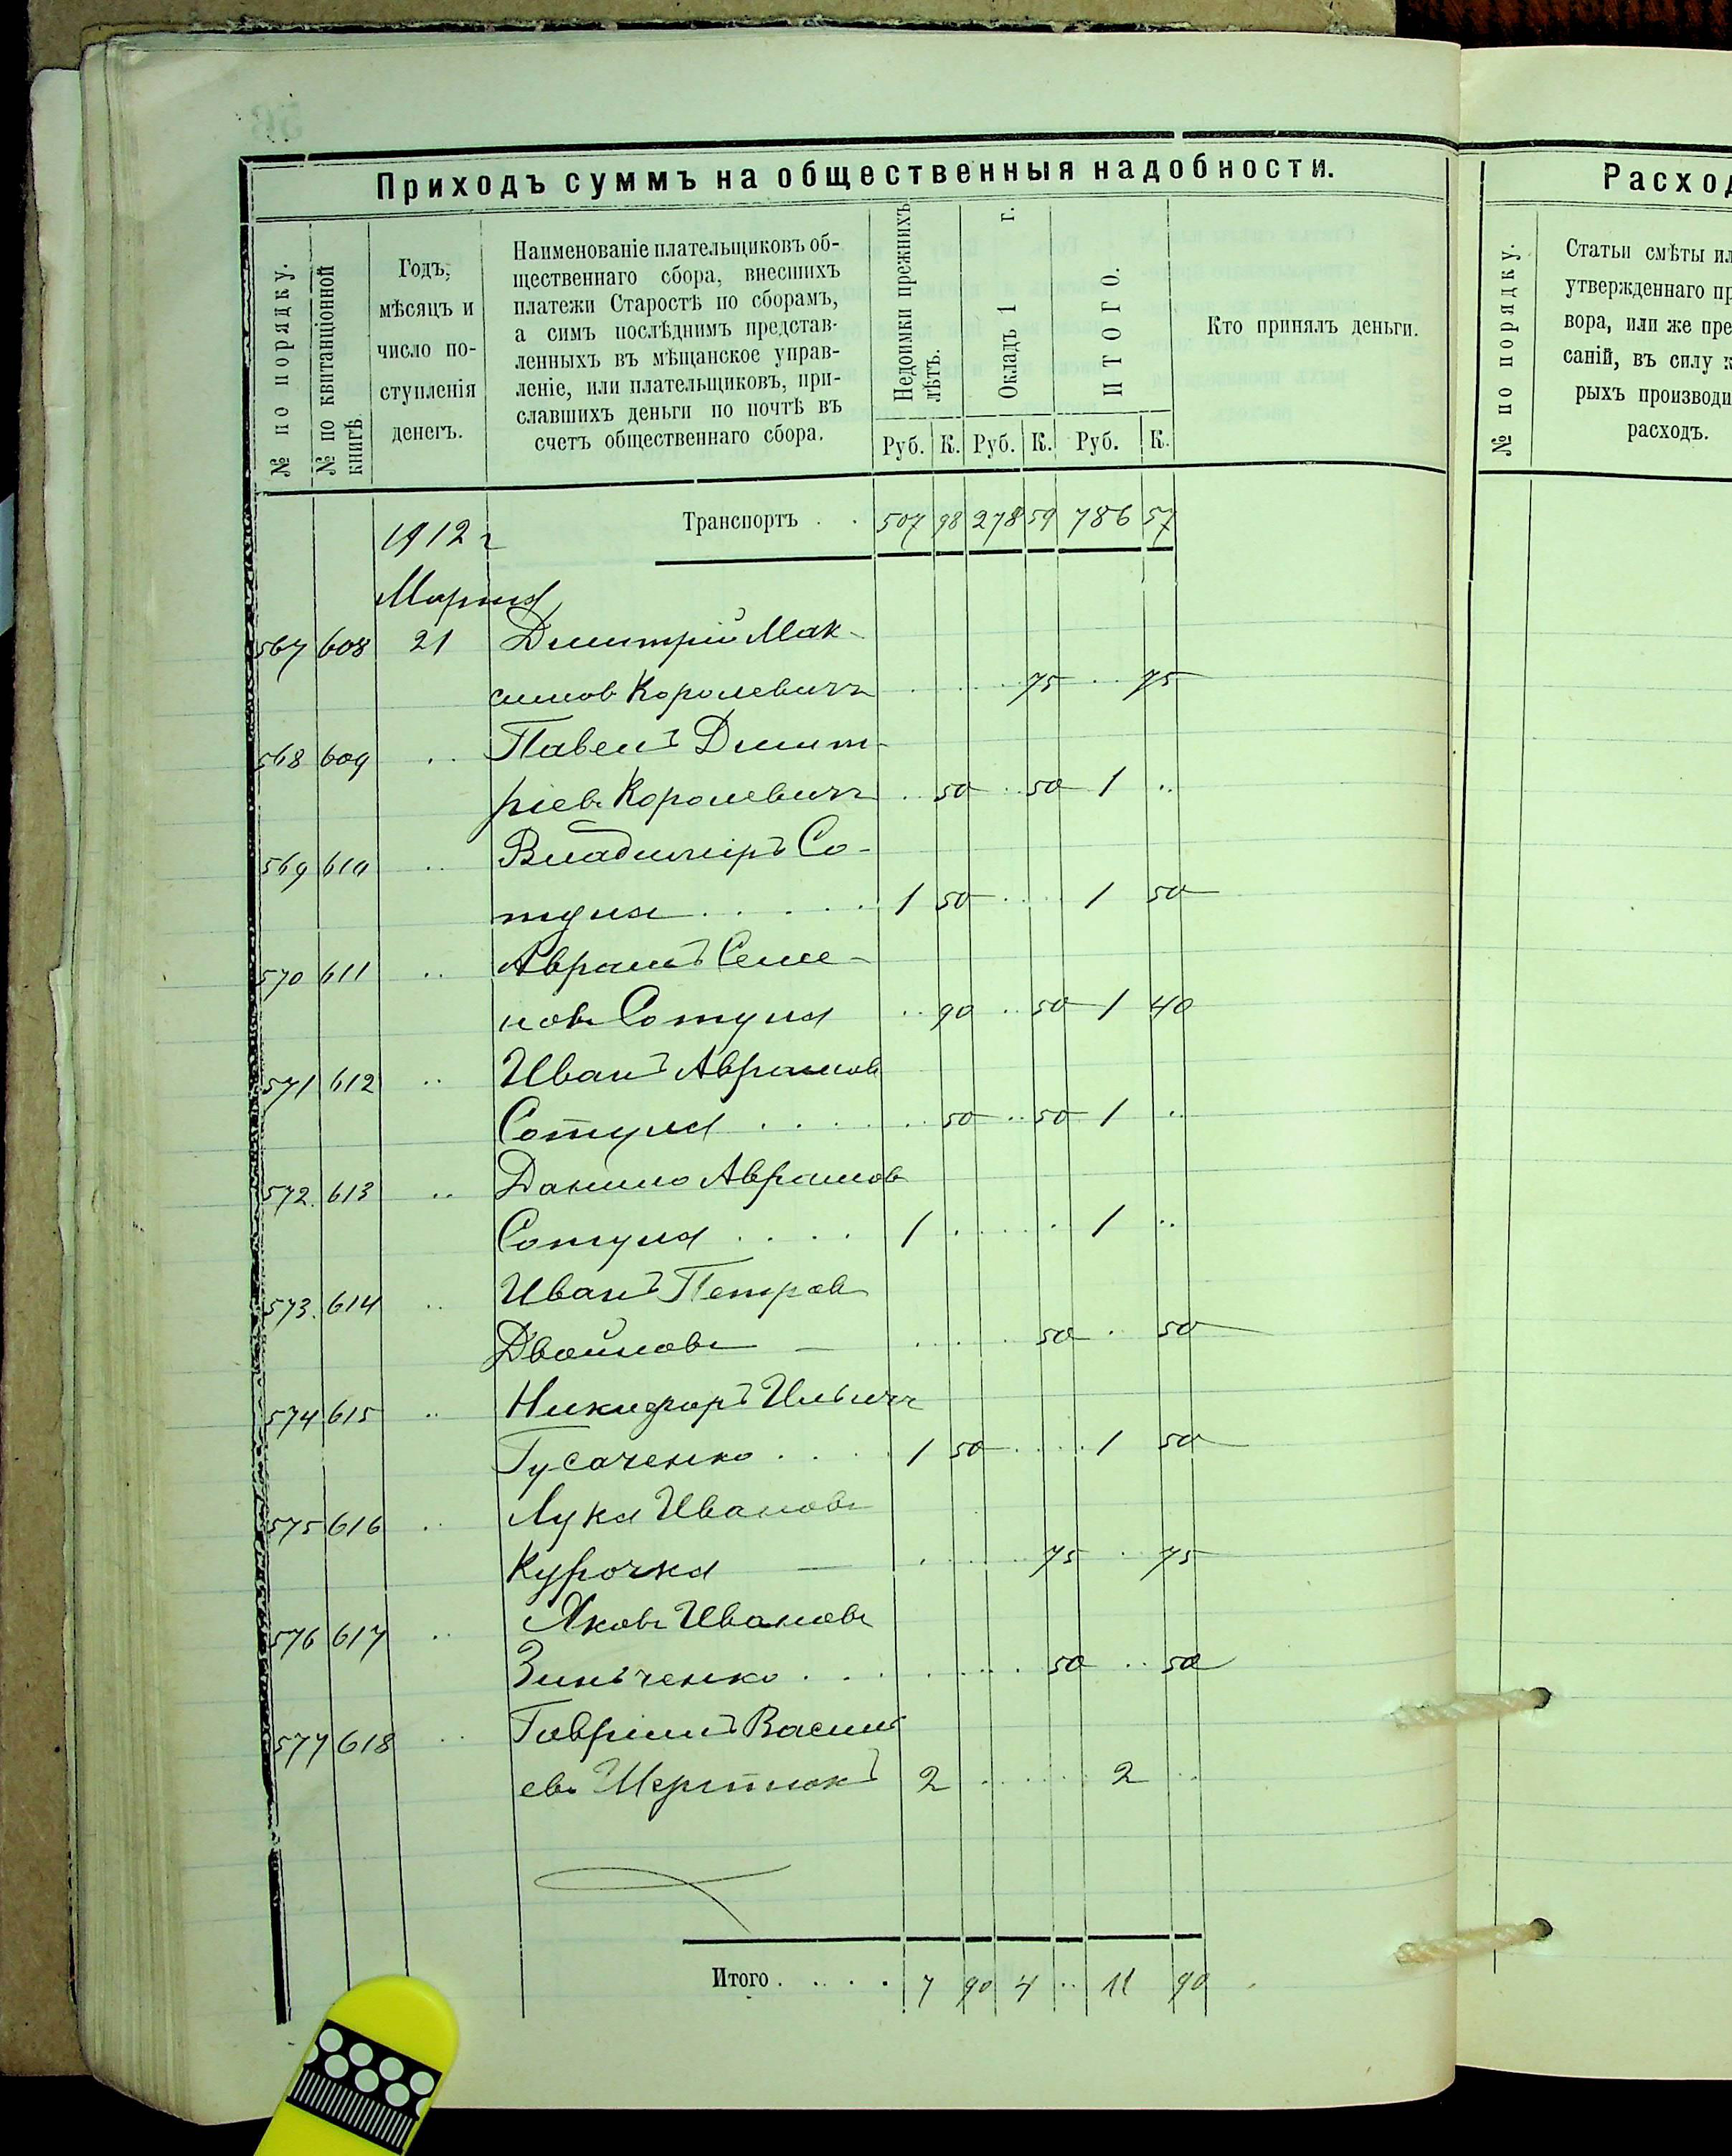 Приходъ суммъ на общественныя надобности.
№ по порядку.
№ по квитанціонной книгѣ
Годъ, мѣсяцъ и число поступленія денегъ.
Наименованіе плательщиковъ об-
щественнаго сбора, внесшихъ
платежи Старостѣ по сборамъ,
а симъ послѣднимъ представ-
ленныхъ въ мѣщанское управ-
леніе, или плательщиковъ, при-
славшихъ деньги по почтѣ въ
счетъ общественнаго сбора.
Недоимки прежнихъ лѣтъ.
Окладъ 1 г.
ИТОГО.
Кто принялъ деньги.
Руб. К. Руб. К. Руб. К.
1912 г Транспортъ . . 507 98 278 59 786 57
Марта
567 608 21 Дмитрій Мак-
симов Королевичъ . . . . 75 . . 75
568 609 .. Павелъ Дмит-
ріевъ Королевичъ . 50 . . 50 1 ..
569 610 .. Владиміръ Со-
тула . . . . . 1 50 . . . . 1 50
570 611 .. Аврамъ Семе-
новъ Сотула .. 90 .. 50 1 40
571 612 .. Иванъ Аврамов
Сотула . . . . . 50 .. 50 1 ..
572. 613 .. Данило Аврамов
Сотула . . . . 1 . . . . 1 ..
573. 614 .. Иванъ Петров
Двойновъ — . . . . 50 . . 50
574 615 .. Никифоръ Ильичъ
Гусаченко . . . 1 50 . . . . 1 50
575 616 .. Лука Ивановъ
Курочка — . . . . 75 . . 75
576 617 .. Яковъ Ивановъ
Зинъченко . . . . . . . 50 . . 50
577 618 .. Гавріилъ Васил
евъ 2 . . . . . 2 ..
Итого . . . . 7 90 4 .. 11 90
Расход
№ по порядку.
Статьи смѣты ил
утвержденнаго пр
вора, или же пре
саній, въ силу к
рыхъ производи
расходъ.